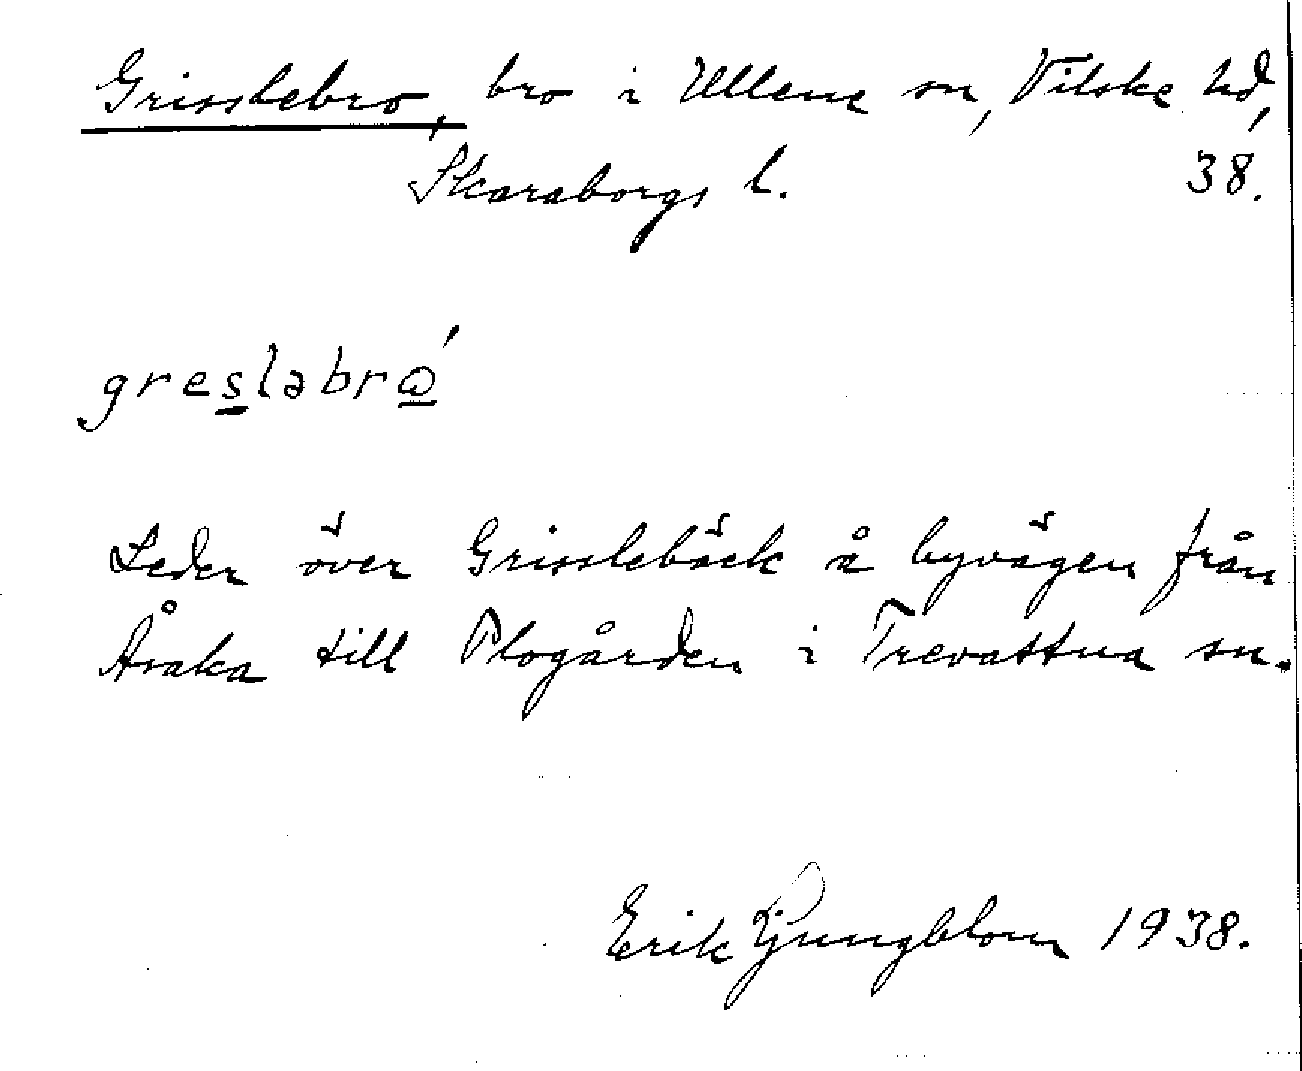 Grisslebro, bro i Ullene sn, Vilske hd,
Skaraborgs l. 38.
gres̲labrώ̲
Leder över Grisslebäck å byvägen från
Åsaka till Plogården i Trevattna sn.
Erik Ljungblom 1938.